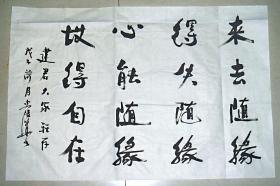 来去随缘
得失随缘
心能随缘
故得自在
建君大家雅存
戊子
月